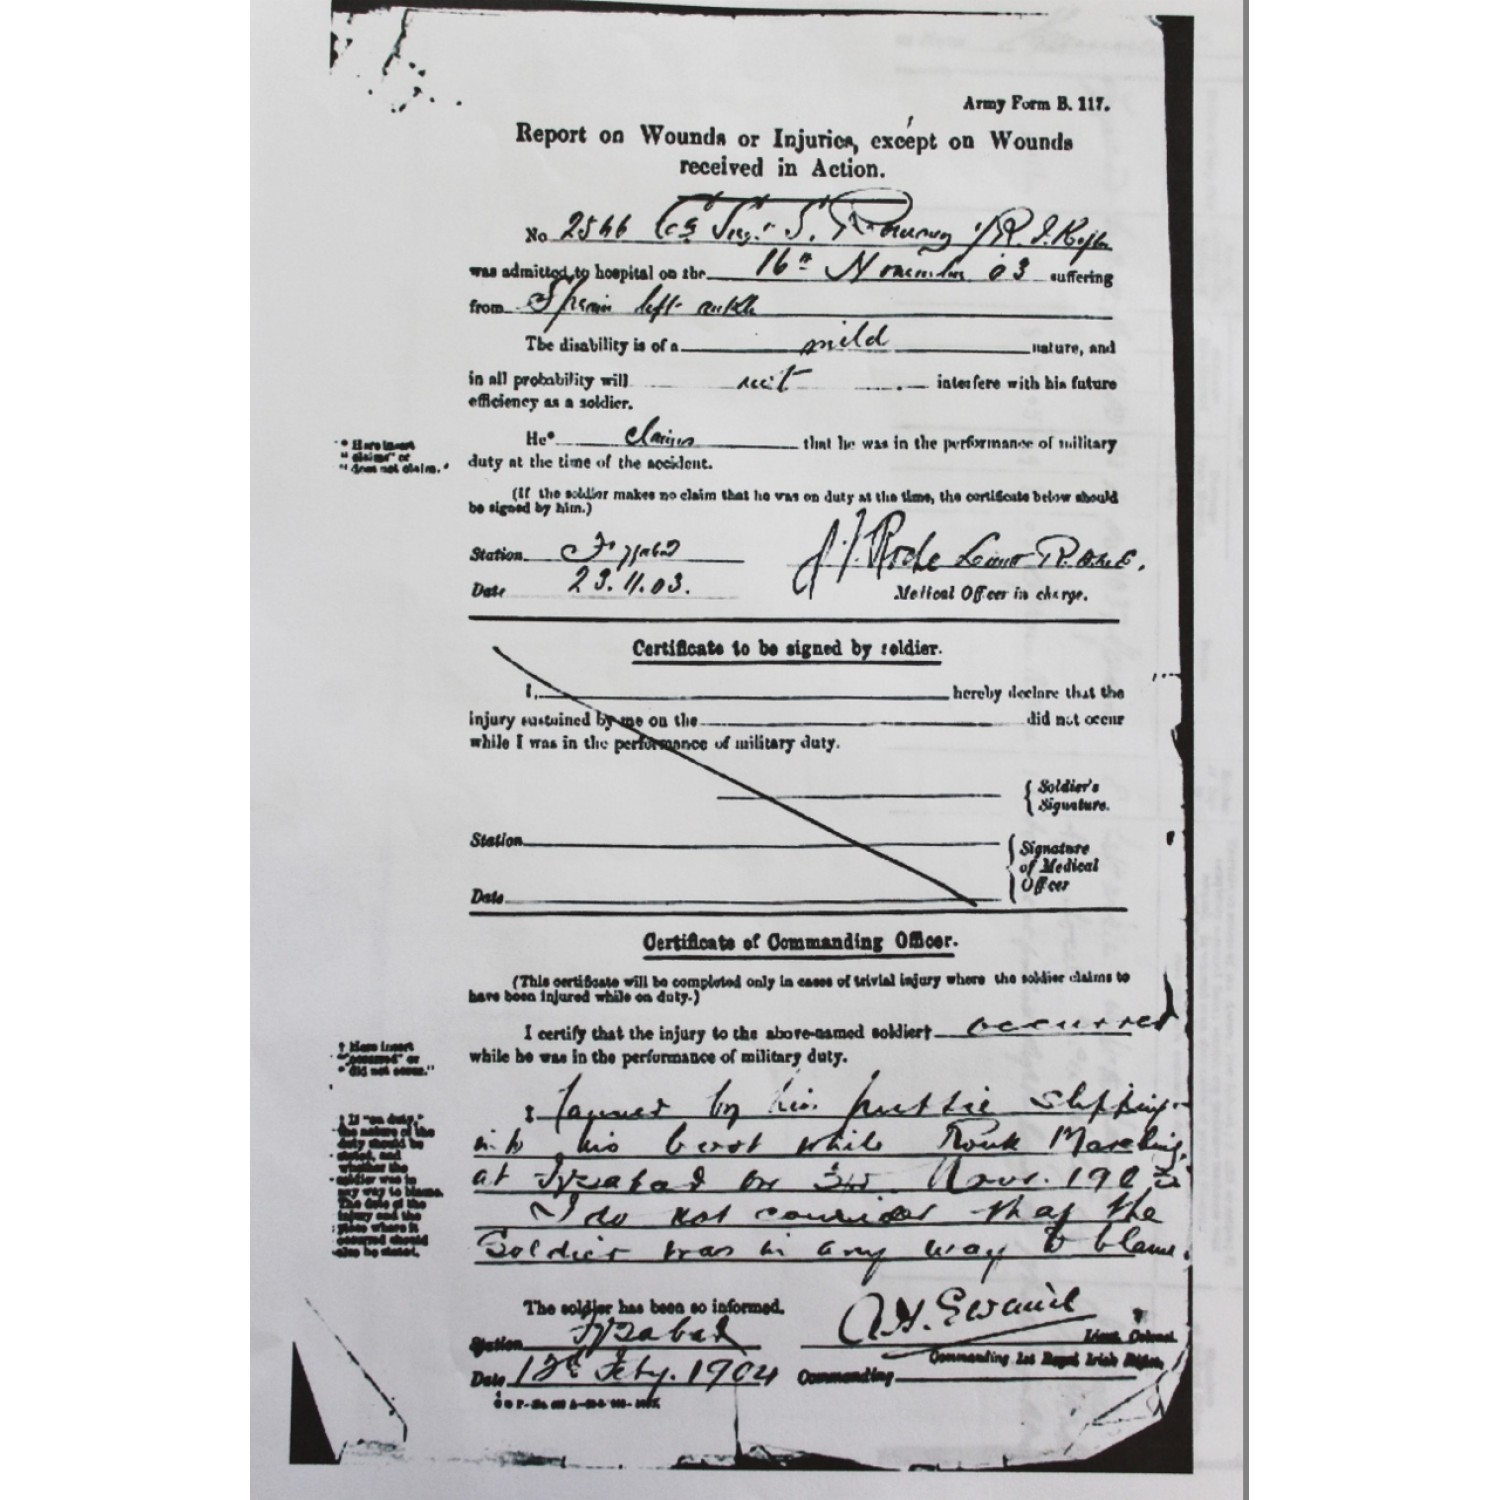 Army Form B. 117.
Report on Wounds or Injuries, except on Wounds
received in Action.
No 2566 Cr Sergt S. 1/R. I. Rifles
was admitted to hospital on the 16th November 03 suffering
from Sprain left ankle
The disability is of a mild nature, and
in all probability will not interfere with his future
efficiency as a soldier.
* Here insert
"claims" or
"does not claim."
He* claims that he was in the performance of military
duty at the time of the accident.
(If the soldier makes no claim that he was on duty at the time, the certificate below should
be signed by him.)
Station Fyzabad
Date 23.11.03.
Medical Officer in charge.
Certificate to be signed by soldier.
I, hereby declare that the
injury sustained by me on the did not occur
while I was in the performance of military duty.
{ Soldier's
Signature.
Station
{ Signature
of Medical
Officer
Date
Certificate of Commanding Officer.
(This certificate will be completed only in cases of trivial injury where the soldier claims to
have been injured while on duty.)
† Here insert
"occurred" or
"did not occur."
I certify that the injury to the above-named soldier† occurred
while he was in the performance of military duty.
‡ If "on duty,"
the nature of the
duty should be
stated, and
whether the
soldier was in
any way to blame.
The date of the
injury and the
place where it
occurred should
also be stated.
‡ Caused by his puttie slipping
into his boot while Route Marching
at Fyzabad on 3rd Novr. 1903
I do not consider that the
Soldier was in any way to blame.
The soldier has been so informed.
Station Fyzabad
Date 12th Feby. 1904
Lieut. Colonel.
Commanding 1st Royal Irish Rifles
Commanding